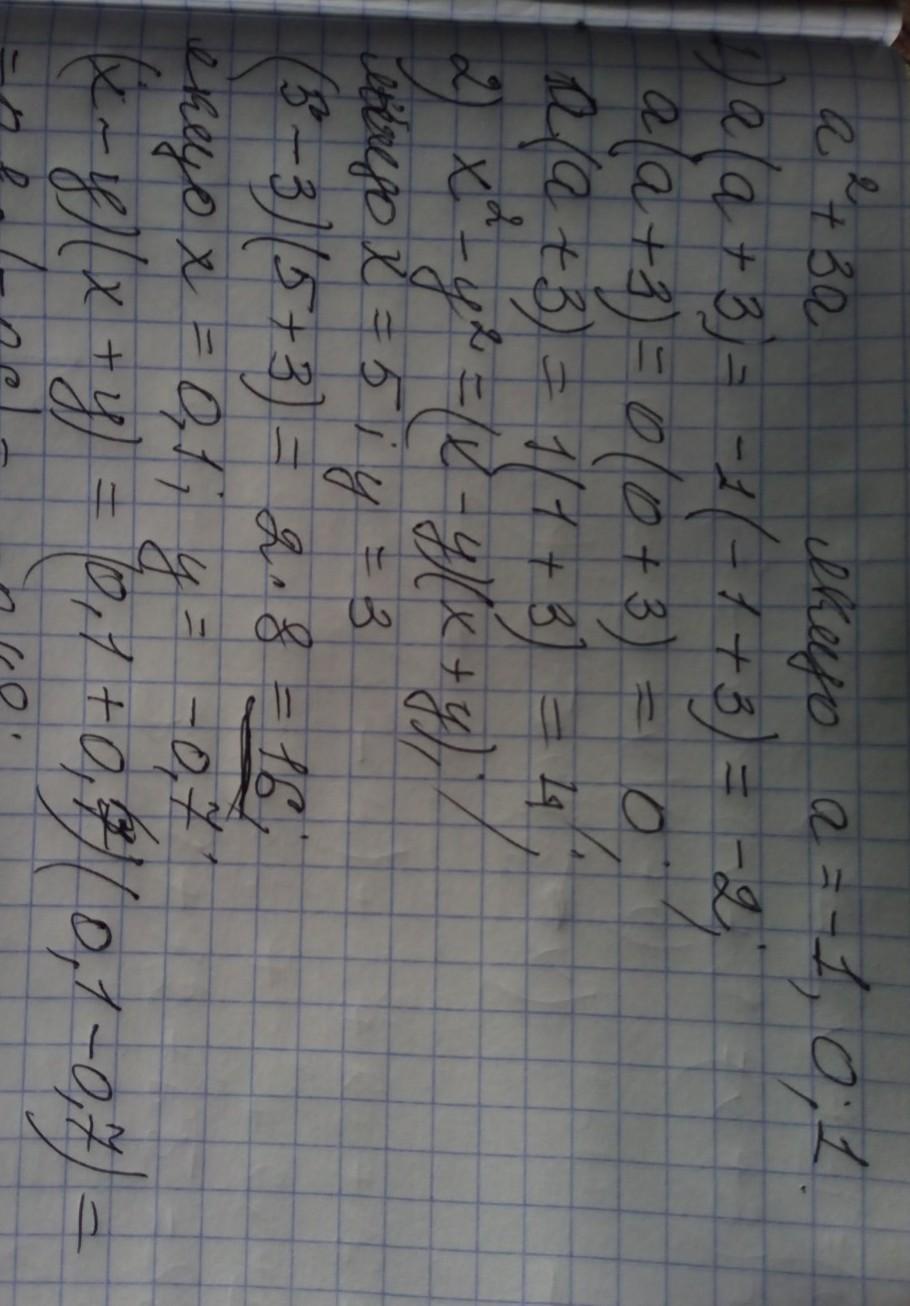 a² + 3a якщо a = -1, 0; 1.
1) a(a + 3) = -1(-1 + 3) = -2;
a(a + 3) = 0(0 + 3) = 0;
a(a + 3) = 1(1 + 3) = 4;
2) x² - y² = (x - y)(x + y);
якщо x = 5; y = 3
(5 - 3)(5 + 3) = 2·8 = 16;
якщо x = 0,1; y = -0,7;
(x - y)(x + y) = (0,1 + 0,7)(0,1 - 0,7) =